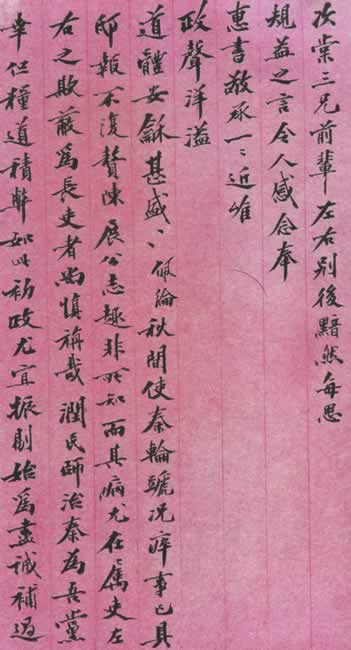 次棠三兄前輩左右別後黯然每思
規益之言令人感念奉
惠書敬承一〻近惟
政聲洋溢
道體安龢甚盛〻佩綸秋間使秦輪況瘁事已具
邸報不復贅陳展公志趣非所知而其病尤在吏左
右之欺蔽為長吏者尚慎旃哉潤民師治秦為吾黨
幸但糧道積弊如此初政尤宜振刷始為盡誠補過